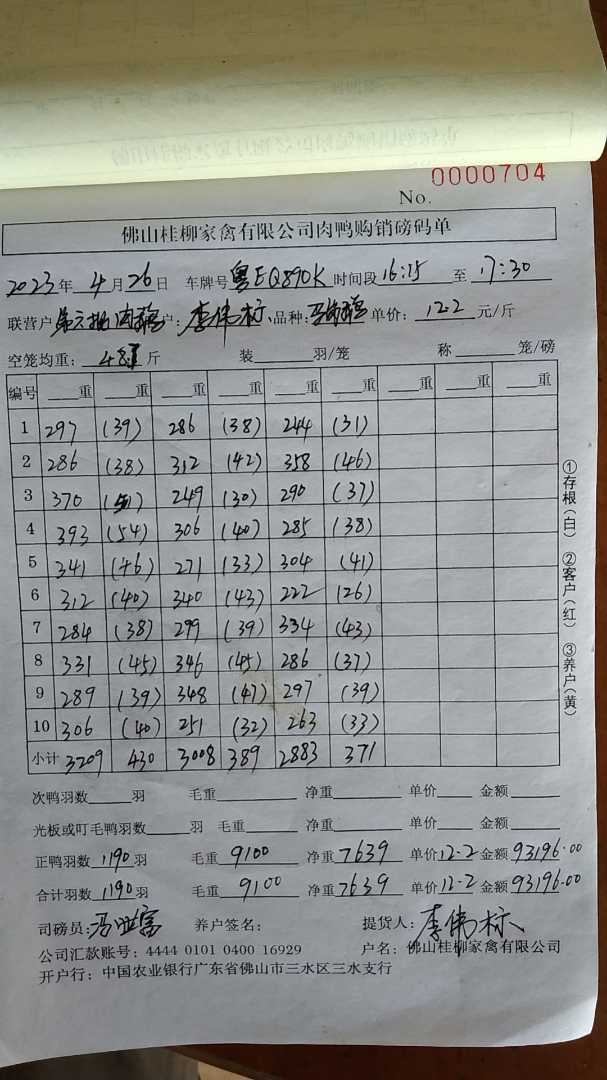 0000704
No.
佛山桂柳家禽有限公司肉鸭购销磅码单
2023年 4月26日 车牌号 粤EQ890K 时间段 16:15 至 17:30
联营户 第六批 户: 李伟标 品种: 单价: 12.2 元/斤
空笼均重: 斤 装 羽/笼 称 笼/磅
编号 重 重 重 重 重 重 重 重 重
1 297 (39) 286 (38) 244 (31)
2 286 (38) 312 (42) 358 (46)
3 370 (51) 249 (30) 290 (37)
4 393 (54) 306 (40) 285 (38)
5 341 (46) 271 (33) 304 (41)
6 312 (40) 340 (43) 222 (26)
7 284 (38) 299 (39) 334 (43)
8 331 (45) 346 (45) 286 (37)
9 289 (39) 348 (47) 297 (39)
10 306 (40) 251 (32) 263 (33)
小计 3209 430 3008 389 2883 371
次鸭羽数 羽 毛重 净重 单价 金额
光板或叮毛鸭羽数 羽 毛重 净重 单价 金额
正鸭羽数 1190 羽 毛重 9100 净重 7639 单价 12.2 金额 93196.00
合计羽数 1190 羽 毛重 9100 净重 7639 单价 12.2 金额 93196.00
司磅员: 养户签名: 提货人: 李伟标
公司汇款账号: 4444 0101 0400 16929 户名: 佛山桂柳家禽有限公司
开户行: 中国农业银行广东省佛山市三水区三水支行
①存根(白) ②客户(红) ③养户(黄)